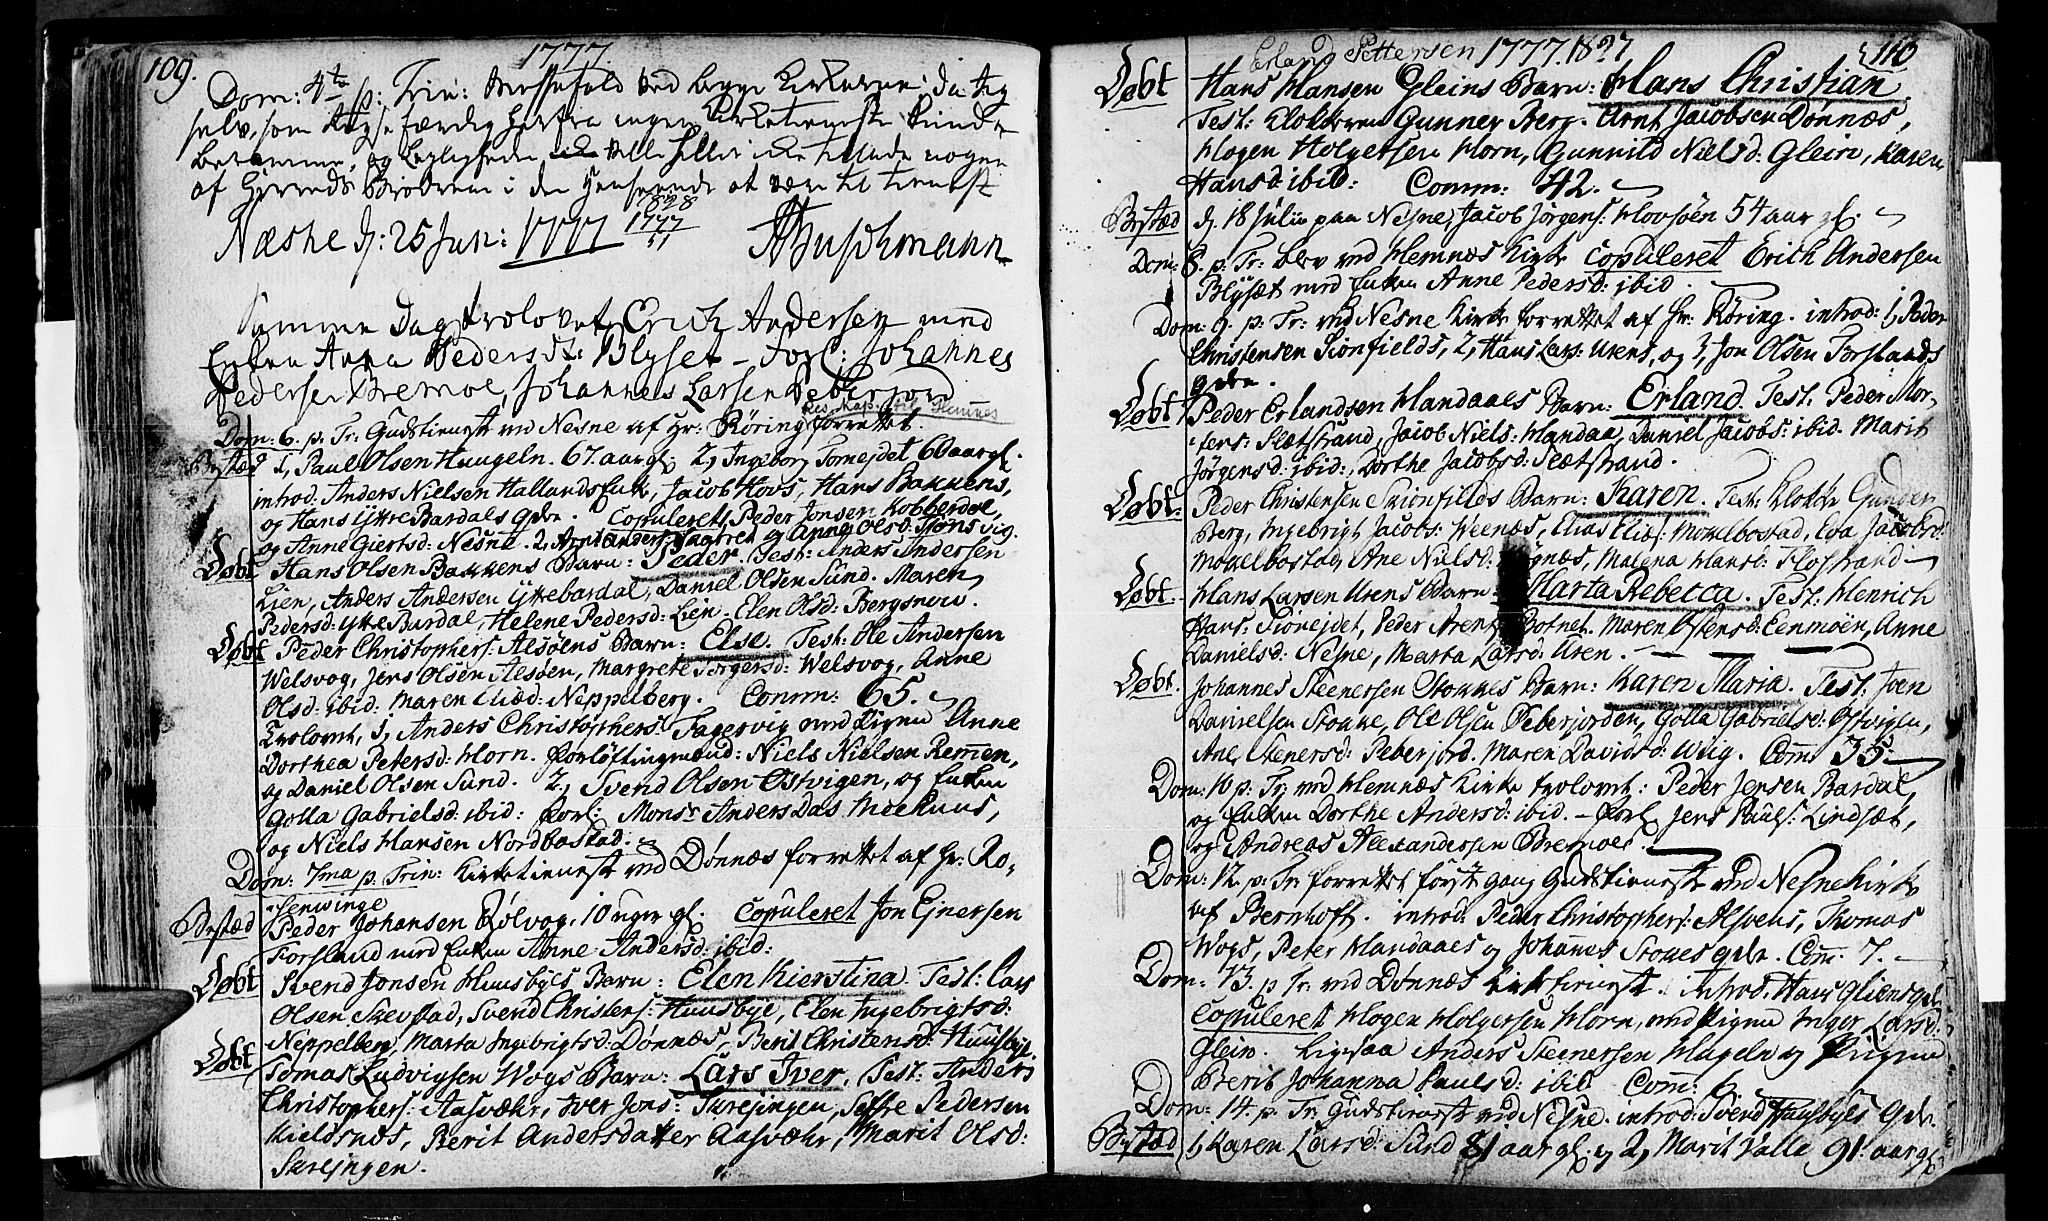 109.
1777.
Dom: 4te p: Trin: Messefald ved begge Kirkerne, da jeg
selv, som Reyse færdig herfra ingen Kirketieneste kunde
bekomme, og Leyligheden ikke heller tillade nogen
af Herreds Brødrene i den Henseende at være til tieneste
Næsne d: 25 Jun: 1777
1828
1777
51
ABuschmann
Samme Dag trolovet Erich Andersen med
Enken Anna Pedersdt: Blyset - Forl: Johannes
Pedersen Bremoe, Johannes Larsen Leberjord
Res. Kap. til Hemnes
Dom: 6. p: Tr: Gudstienest ved Nesne af Hr: Röring forrettet.
Bestæd 1, Paul Olsen Huugeln. 67. aar gl. 2, Ingeborg Tomejdet 60 aar gl.
introd: Anders Nielsen Hallands Enk, Jacob Hovs, Hans Bakkens,
og Hans Yttre Bardals qvdr. Copuleret 1, Peder Jonsen Kobberdal,
og Anne Giertsd: Nesne. 2, Arnt Anders: Fagervig og Anne Olsd: Sjonsvig.
Døbt Hans Olsen Bakkens Barn: Peder. Test: Anders Andersen
Lien, Anders Andersen Yttebardal, Daniel Olsen Sund. Maren
Pedersd: Ytte Bardal, Helene Pedersd: Lien. Elen Olsd: Bergsnov.
Døbt Peder Christophers: Alsöens Barn: Else. Test: Ole Andersen
Welsvog, Jens Olsen Alsöen, Margrete Torgersd: Welsvog, Anne
Olsd: ibid: Maren Eliæd: Neppelberg. Comm: 65.
Trolovet, 1, Anders Christophers: Fagervig med Pigen Anne
Dorthea Petersd: Horn. Forlöftingmænd: Niels Nielsen Remen,
og Daniel Olsen Sund. 2, Svend Olsen Ostvigen, og Enken
Golla Gabrielsd: ibid: Forl: Monsr Anders Das Meehuus,
og Niels Hansen Nordbostad.
Dom: 7ma p: Trin: Kirketienest ved Dønnæs forrettet af Hr: Ro-
senwinge
Bestæd Peder Johansen Rölvog. 10 uger gl. Copuleret Jon Ejnersen
Forsland med Enken Anne Andersd: ibid:
Døbt Svend Jonsen Huusbyes Barn: Elen Kierstina. Test: Lars
Olsen Skevstad, Svend Christens: Huusbye, Elen Ingebrigtsd:
Neppelberg, Marta Ingebrigtsd: Dönnæs, Berit Christensd: Huusbye.
Døbt Tomas Ludvigsen Wogs Barn: Lars Iver. Test: Anders
Christophers: Aasvæhr, Iver Jons: Skrejingen, Seffre Pedersen
Kieldsnæs, Berit Andersdatter Aasvæhr, Marit Olsd:
Skrejingen.
Erland Pettersen 1777. 1827
110
Døbt Hans Hansen Gleins Barn: Hans Christian.
Test: Klokkeren Gunner Berg. Arnt Jacobsen Dönnæs,
Hogen Holgersen Horn, Gunnild Nielsd: Glein, Karen
Hansd: ibid: Comm: 42.
Bestæd d. 18 Julii paa Nesne, Jacob Jörgens: Hovsöen 54 aar gl.
Dom: 8. p: Tr: blev ved Hemnæs Kirke Copuleret Erich Andersen
Blysæt med Enken Anne Pedersd: ibid.
Dom: 9. p: Tr: ved Nesne Kirke forrettet af Hr: Röring. introd: 1, Peder
Christensen Sionfields, 2, Hans Lars: Urens, og 3, Jon Olsen Forslands
qvdr.
Døbt Peder Erlandsen Handaaes Barn: Erland. Test: Peder Mor-
tens: Slætstrand, Jacob Niels: Handaa, Daniel Jacobs: ibid. Marit
Jörgensd: ibid:, Dorthe Jacobsd: Slætstrand.
Døbt: Peder Christensen Sionfields Barn: Karen. Test: Klokk: Gunder
Berg, Ingebrigt Jacobs: Weenæs, Elias Eliæ: Mokelbostad, Eva Jacobsd:
Mokelbostad, Ane Nielsd: Hognæs, Malena Hansd: Flostrand
Døbt Hans Larsen Urens Barn: Marta Rebecca. Test: Henrich
Hans: Sionejdet, Peder Arentz Botnet. Maren Ostensd: Eenmöen, Anne
Danielsd: Nesne, Marta Larsd: Uren.
Døbt. Johannes Steenersen Stokkes Barn: Karen Maria. Test: Joen
Danielsen Stokke, Ole Olsen Peberjorden, Golla Gabrielsd: Ostvigen,
Ane Stenersd: Peberjord. Maren Davidsd: Utvig. Com: 35.
Dom: 10 p: Tr: ved Hemnæs Kirke trolovet: Peder Jensen Bardal,
og Enken Dorthe Andersd: ibid. - Forl: Jens Pauls: Lindsæt,
og Andreas Alexandersen Bremoe.
Dom: 12. p: Tr: forrettet först gang Gudstienest ved Nesne Kirke
af Bernhoft. introd: Peder Christophers: Alsöens, Thomas
Wogs, Peter Handaaes og Johannes Stokes qvdr. Com: 7.
Dom: 13. p Tr: ved Dönnæs Kirketienest. Introd: Hans Gliens qv.
Copuleret Hogen Holgersen Horn, med Pigen Inger Larsd:
Glein. Ligesaa Anders Steenersen Hageln og Pigen
Berit Johanna Paulsd: ibid. Com: 6
Dom: 14. p: Tr: Gudstienest ved Nesne. introd: Svend Huusbyes qvdr.
Bestæd 1, Karen Larsd: Sund 81 aar gl. og 2, Marit Valle 91. aar gl